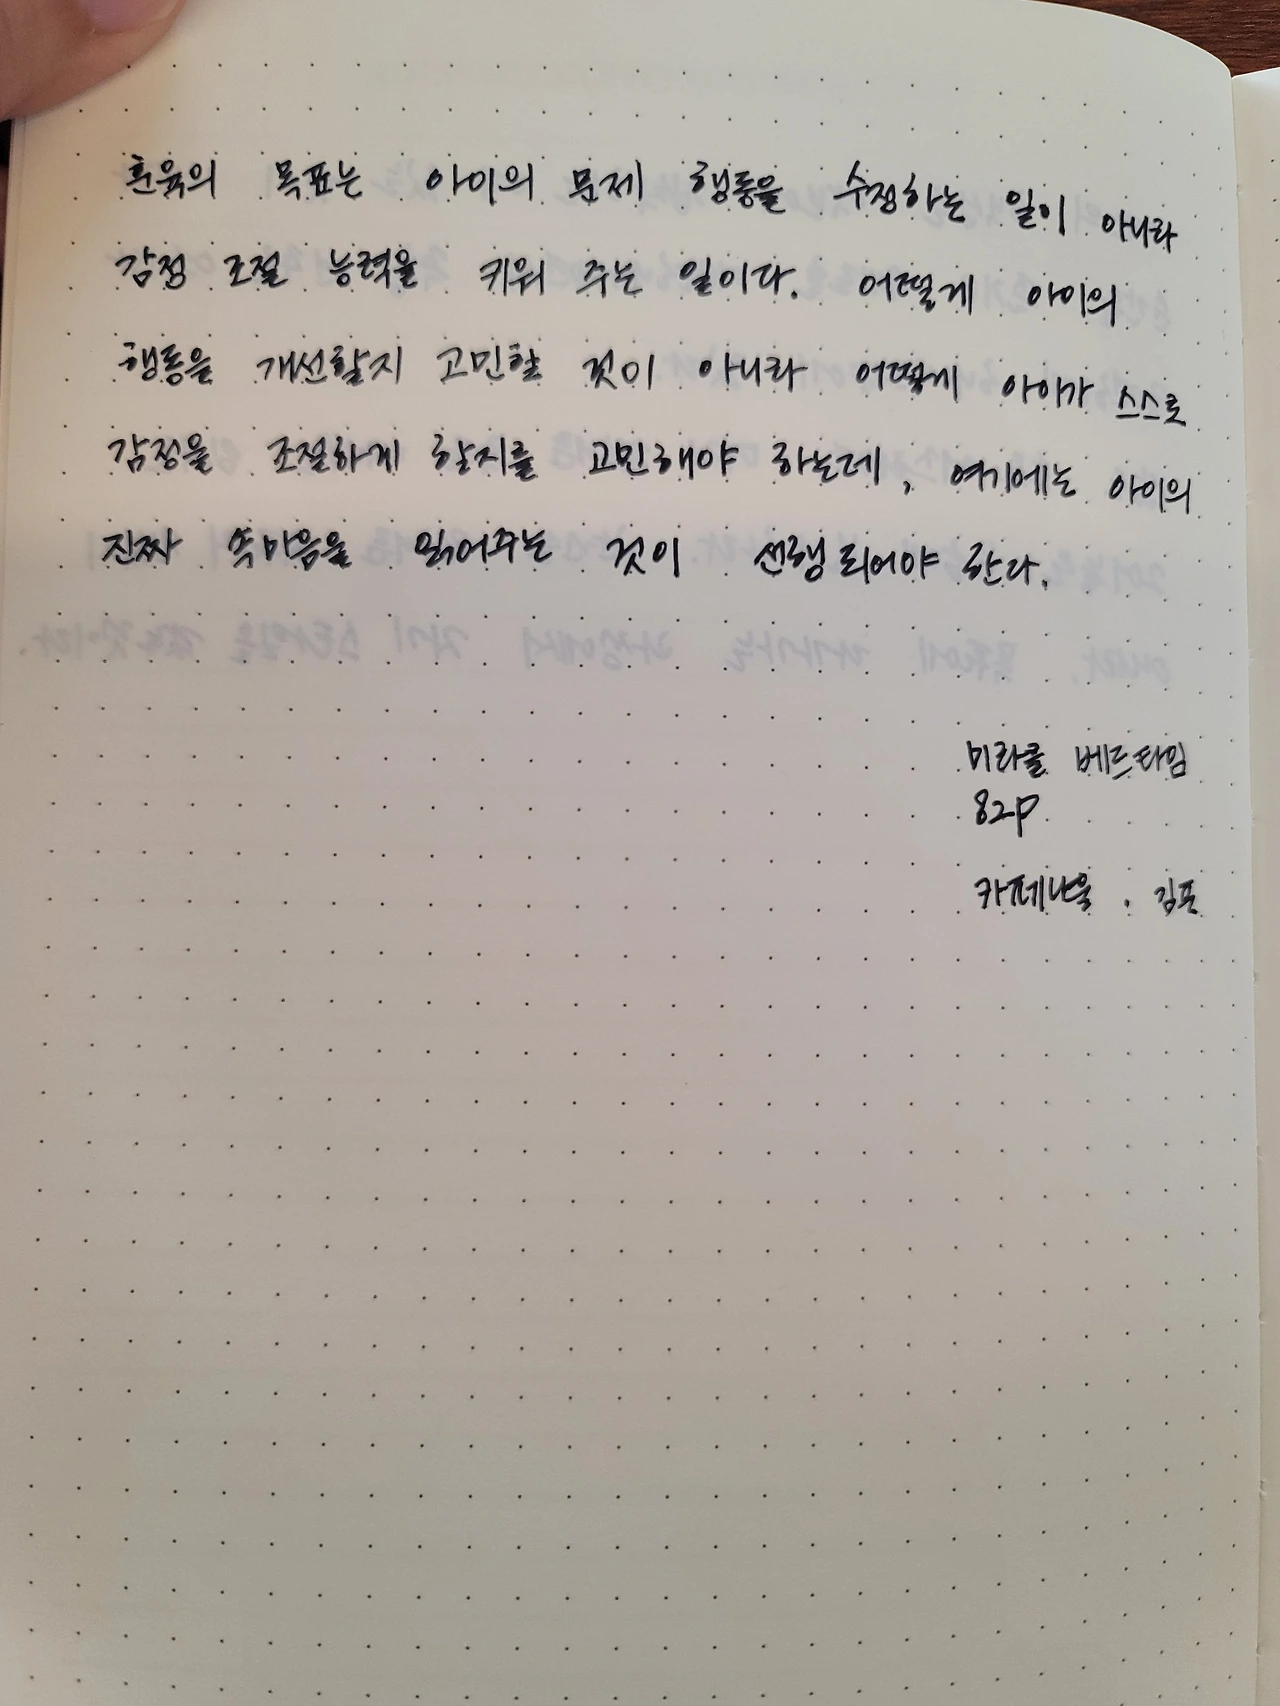 훈육의 목표는 아이의 문제 행동을 수정하는 일이 아니라
감정 조절 능력을 키워 주는 일이다. 어떻게 아이의
행동을 개선할지 고민할 것이 아니라 어떻게 아이가 스스로
감정을 조절하게 할지를 고민해야 하는데, 여기에는 아이의
진짜 속마음을 읽어주는 것이 선행되어야 한다.
미라클 베드타임
82p
카페나욱. 김포